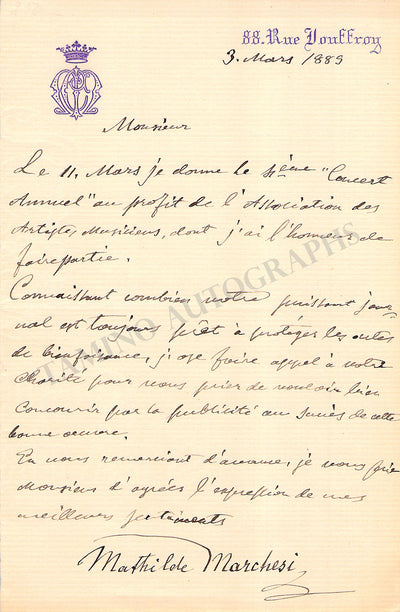 88. Rue Jouffroy
3. Mars 1889
Monsieur
Le 11. Mars je donne le "Concert
Annuel" au profit de l'Association des
Artistes Musiciens, dont j'ai l'honneur de
faire partie.
Connaissant combien votre puissant jour-
nal est toujours prêt à protéger les actes
de bienfaisance, j'ose faire appel à votre
charité pour vous prier de vouloir bien
concourir par la publicité au succès de cette
bonne oeuvre.
En vous remerciant d'avance, je vous prie
Monsieur d'agréer l'expression de mes
meilleurs sentiments
Mathilde Marchesi
TAMINO AUTOGRAPHS